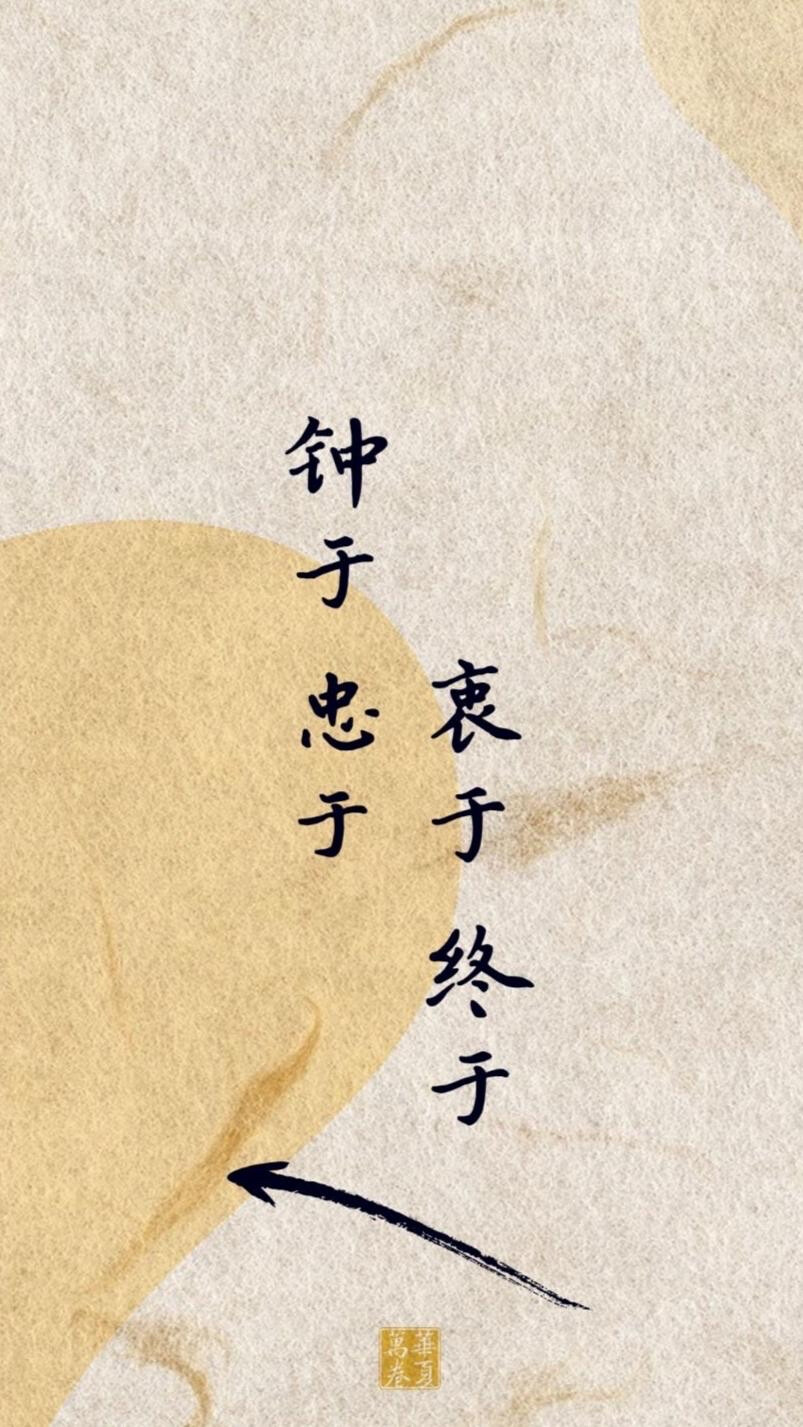 钟于 忠于
衷于 终于
華夏
萬卷